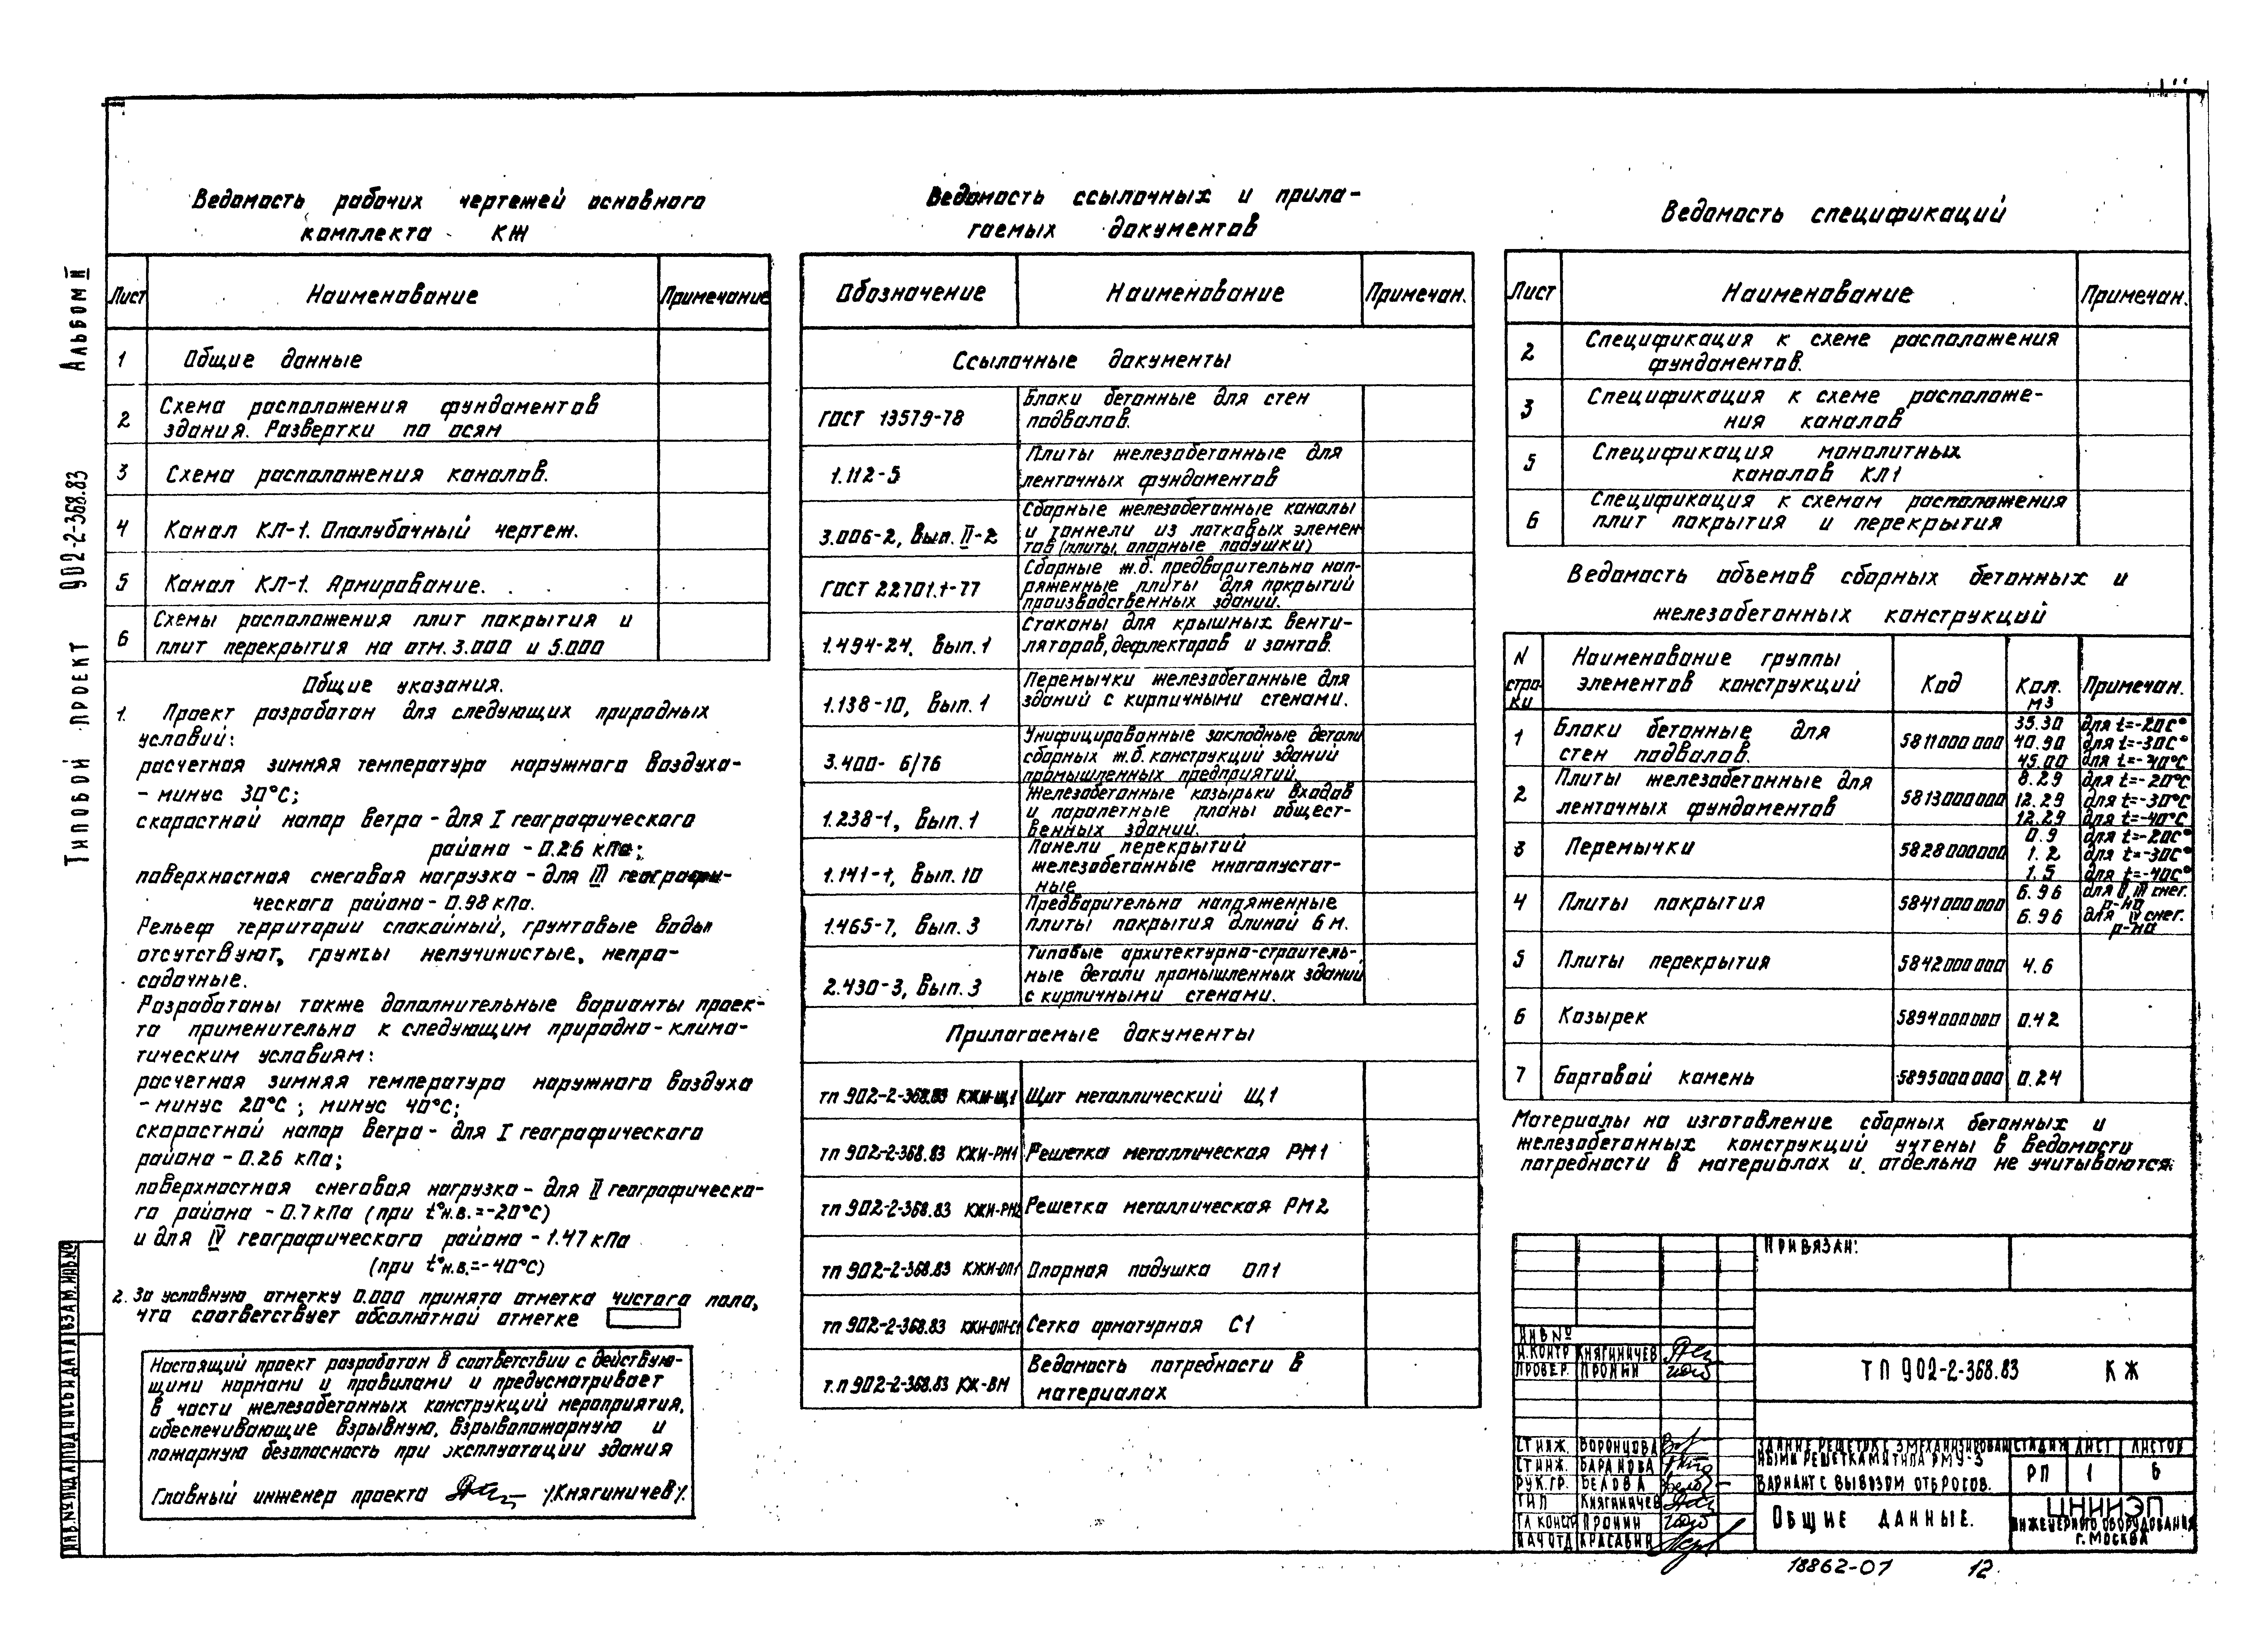 Типовой проект 902-2-368.83 Альбом II
Ведомость рабочих чертежей основного
комплекта КЖ
Лист Наименование Примечание
1 Общие данные
2 Схема расположения фундаментов
здания. Развертки по осям
3 Схема расположения каналов.
4 Канал КЛ-1. Опалубочный чертеж.
5 Канал КЛ-1. Армирование.
6 Схемы расположения плит покрытия и
плит перекрытия на отм. 3.000 и 5.000
Общие указания.
1. Проект разработан для следующих природных
условий:
расчетная зимняя температура наружного воздуха-
- минус 30°С;
скоростной напор ветра - для I географического
района - 0.26 кПа;
поверхностная снеговая нагрузка - для III географи-
ческого района - 0.98 кПа.
Рельеф территории спокойный, грунтовые воды
отсутствуют, грунты непучинистые, непро-
садочные.
Разработаны также дополнительные варианты проек-
та применительно к следующим природно-клима-
тическим условиям:
расчетная зимняя температура наружного воздуха
- минус 20°С; минус 40°С;
скоростной напор ветра - для I географического
района - 0.26 кПа;
поверхностная снеговая нагрузка - для II географическо-
го района - 0.7 кПа (при t°н.в.=-20°С)
и для IV географического района - 1.47 кПа
(при t°н.в.=-40°С)
2. За условную отметку 0.000 принята отметка чистого пола,
что соответствует абсолютной отметке
Настоящий проект разработан в соответствии с действую-
щими нормами и правилами и предусматривает
в части железобетонных конструкций мероприятия,
обеспечивающие взрывную, взрывопожарную и
пожарную безопасность при эксплуатации здания
Главный инженер проекта /Княгиничев/.
Ведомость ссылочных и прила-
гаемых документов
Обозначение Наименование Примечан.
Ссылочные документы
ГОСТ 13579-78 Блоки бетонные для стен
подвалов.
1.112-5 Плиты железобетонные для
ленточных фундаментов
3.006-2, Вып. II-2 Сборные железобетонные каналы
и тоннели из лотковых элемен-
тов (плиты, опорные подушки)
ГОСТ 22701.1-77 Сборные ж.б. предварительно нап-
ряженные плиты для покрытий
производственных зданий.
1.494-24, Вып. 1 Стаканы для крышных венти-
ляторов, дефлекторов и зонтов.
1.138-10, Вып. 1 Перемычки железобетонные для
зданий с кирпичными стенами.
3.400-6/76 Унифицированные закладные детали
сборных ж.б. конструкций зданий
промышленных предприятий.
1.238-1, Вып. 1 Железобетонные козырьки входов
и парапетные планы общест-
венных зданий.
1.141-1, Вып. 10 Панели перекрытий
железобетонные многопустот-
ные
1.465-7, Вып. 3 Предварительно напряженные
плиты покрытия длиной 6 м.
2.430-3, Вып. 3 Типовые архитектурно-строитель-
ные детали промышленных зданий
с кирпичными стенами.
Прилагаемые документы
тп 902-2-368.83 КЖИ-Щ1 Щит металлический Щ1
тп 902-2-368.83 КЖИ-РМ1 Решетка металлическая РМ1
тп 902-2-368.83 КЖИ-РМ2 Решетка металлическая РМ2
тп 902-2-368.83 КЖИ-ОП1 Опорная подушка ОП1
тп 902-2-368.83 КЖИ-ОП1-С1 Сетка арматурная С1
т.п 902-2-368.83 КЖ-ВМ Ведомость потребности в
материалах
Ведомость спецификаций
Лист Наименование Примечан.
2 Спецификация к схеме расположения
фундаментов.
3 Спецификация к схеме расположе-
ния каналов
5 Спецификация монолитных
каналов КЛ1
6 Спецификация к схемам расположения
плит покрытия и перекрытия
Ведомость объемов сборных бетонных и
железобетонных конструкций
N
стро-
ки Наименование группы
элементов конструкций Код Кол.
м3 Примечан.
1 Блоки бетонные для
стен подвалов. 5811000000 35.30 для t=-20С°
40.90 для t=-30С°
45.00 для t=-40°С
2 Плиты железобетонные для
ленточных фундаментов 5813000000 8.29 для t=-20°С
12.29 для t=-30°С
12.29 для t=-40°С
3 Перемычки 5828000000 0.9 для t=-20С°
1.2 для t=-30С°
1.5 для t=-40С°
4 Плиты покрытия 5841000000 6.96 для II, III снег.
р-на
6.96 для IV снег.
р-на
5 Плиты перекрытия 5842000000 4.6
6 Козырек 5894000000 0.42
7 Бортовой камень 5895000000 0.24
Материалы на изготовление сборных бетонных и
железобетонных конструкций учтены в ведомости
потребности в материалах и отдельно не учитываются.
Привязан:
ИНВ №
Н.КОНТР КНЯГИНИЧЕВ
ПРОВЕР. ПРОНИН
СТ ИНЖ. ВОРОНЦОВА
СТ ИНЖ. БАРАНОВА
РУК.ГР. БЕЛОВА
ГИП КНЯГИНИЧЕВ
ГЛ КОНСТР ПРОНИН
НАЧ ОТД КРАСАВИН
ТП 902-2-368.83 КЖ
ЗДАНИЕ РЕШЕТОК С 3 МЕХАНИЗИРОВАН
НЫМИ РЕШЕТКАМИ ТИПА РМУ-3
ВАРИАНТ С ВЫВОЗОМ ОТБРОСОВ.
СТАДИЯ ЛИСТ ЛИСТОВ
РП 1 6
ОБЩИЕ ДАННЫЕ.
ЦНИИЭП
ИНЖЕНЕРНОГО ОБОРУДОВАНИЯ
г. МОСКВА
ИНВ.№ ПОДЛ ПОДПИСЬ И ДАТА ВЗАМ. ИНВ.№
18862-07 12